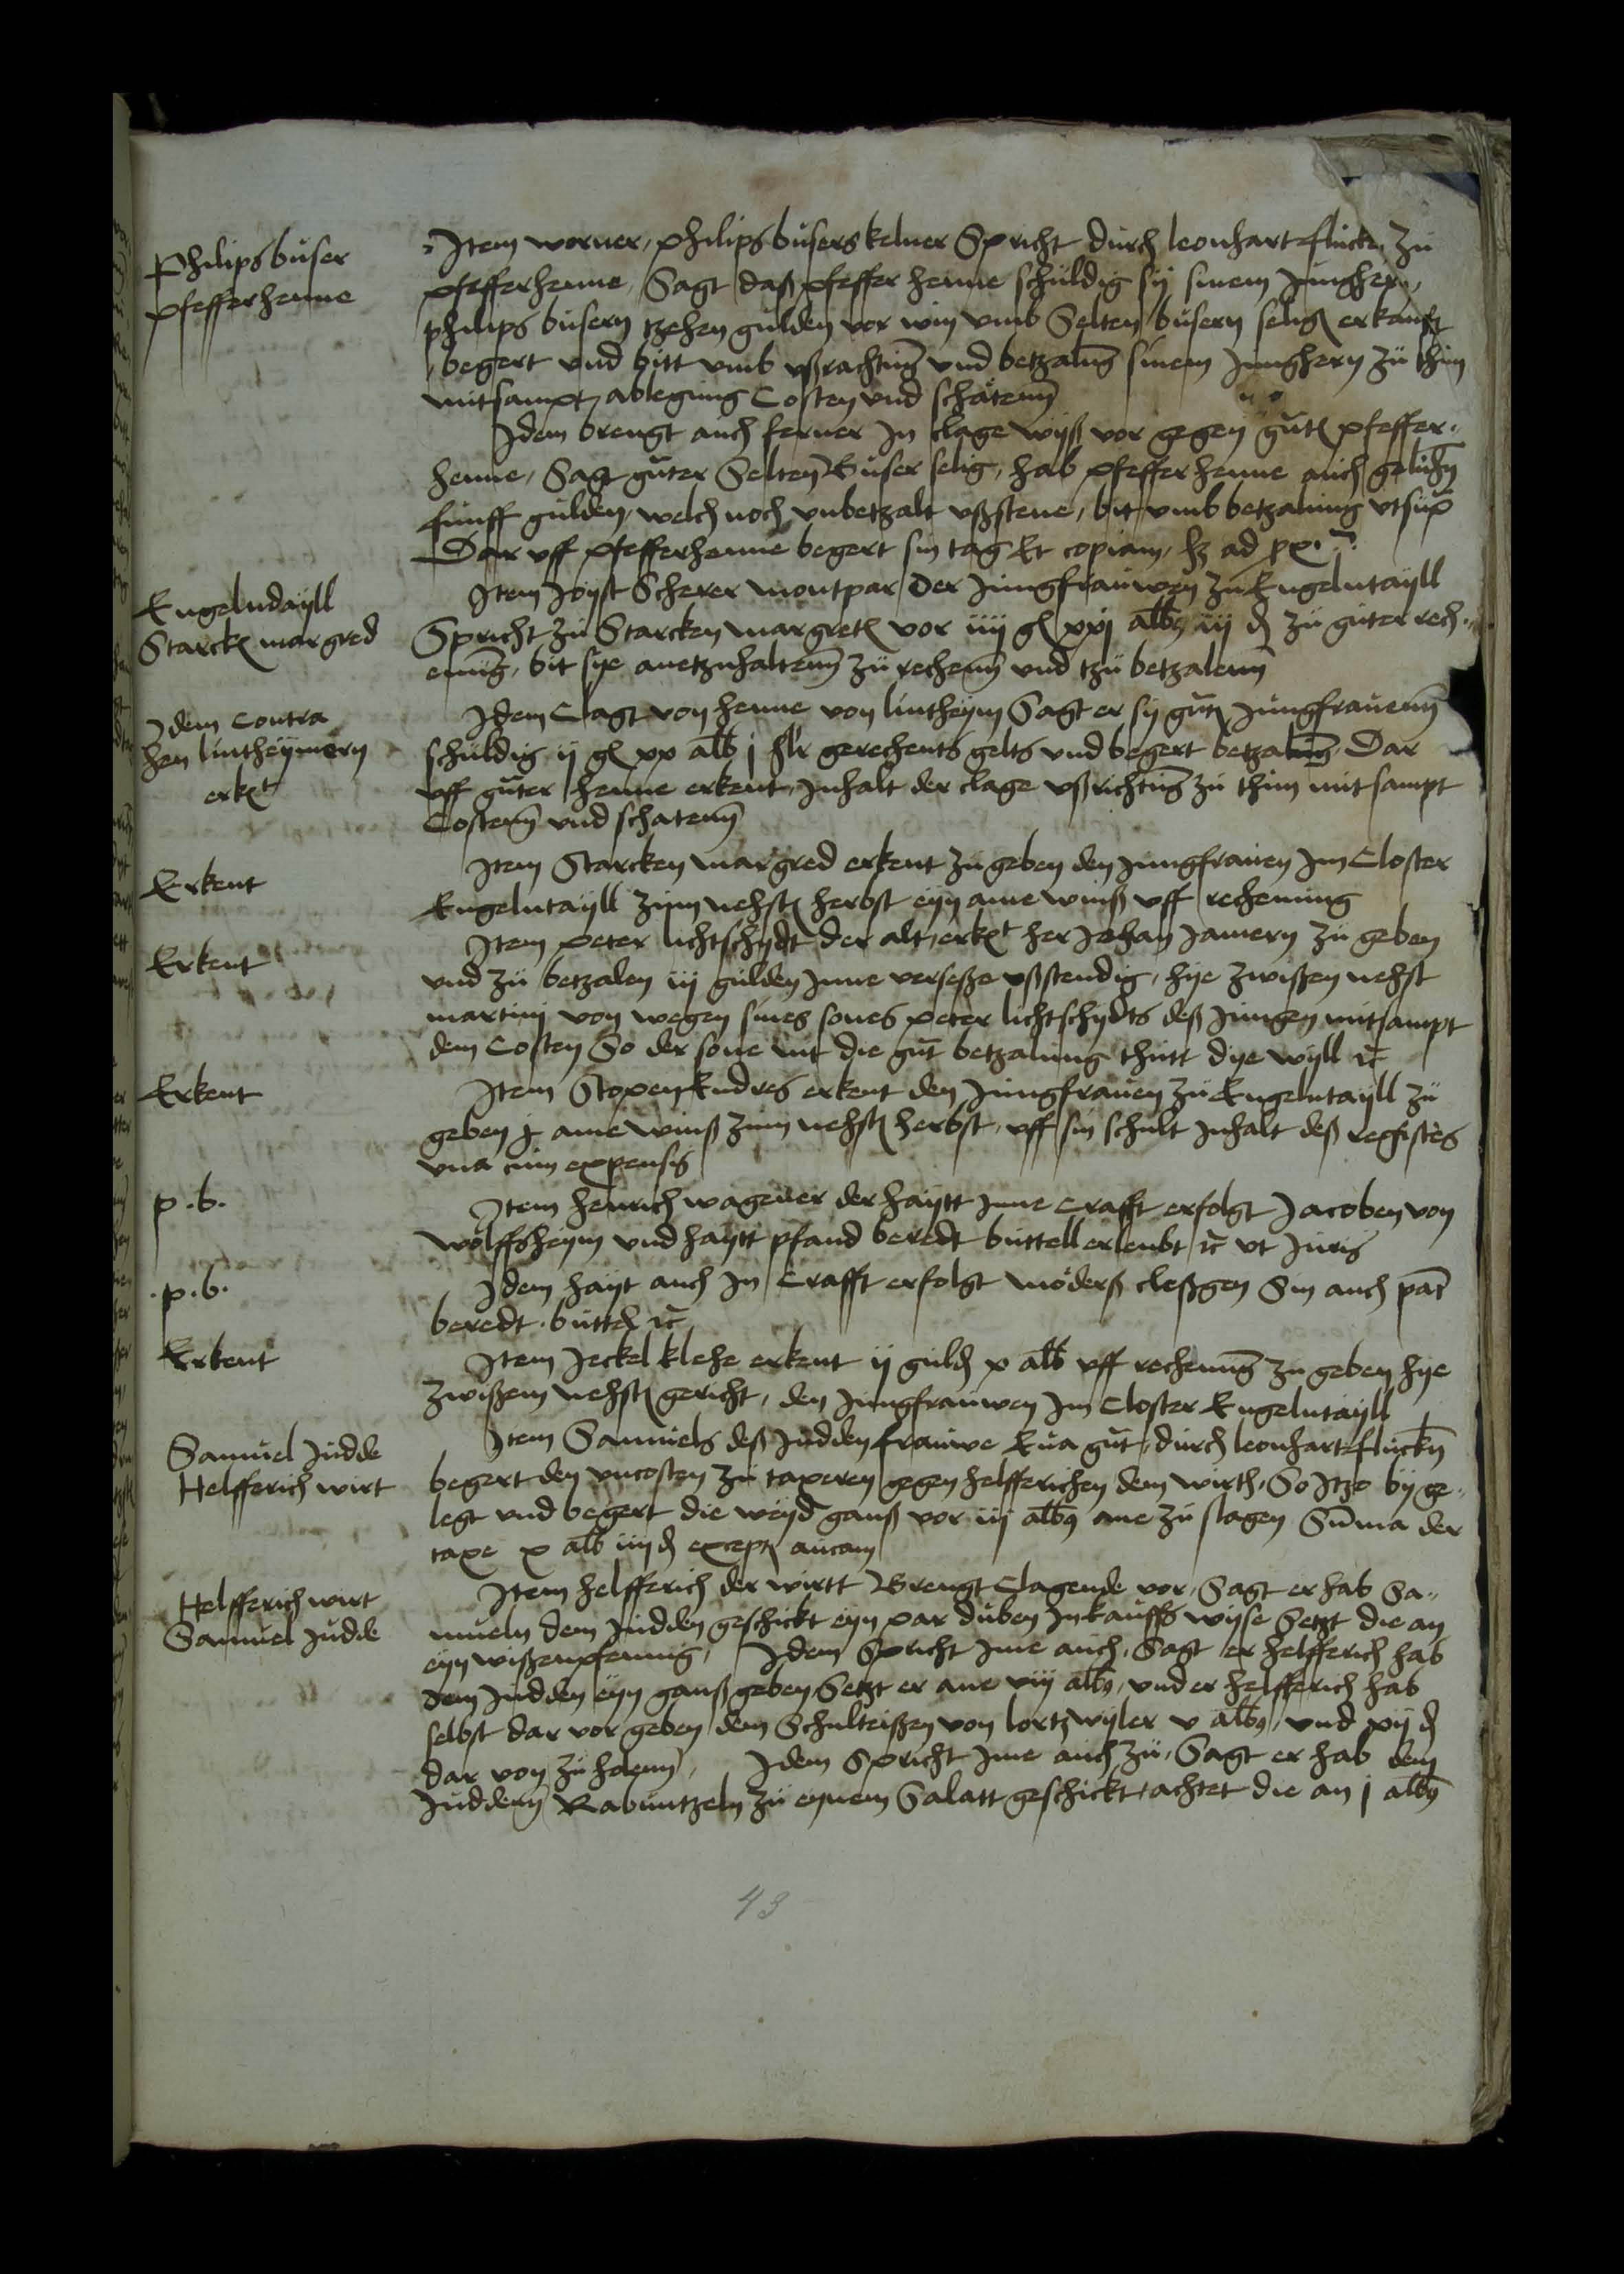 Philips büser
pfefferhenne
Item worner, philips büsers kelner Spricht durch leonhart flucken zü
pfefferhenne, Sagt daß pfeffer henne schüldig sÿ sinem Jünghern,
philips büsern tzehen gülden vor win vmb Selten büsern selig erkaufft
begert vnd bitt vmb vßrachtung vnd betzalung sinem Junghern zü thun
mitsampt ablegung Costen vnd schätenn
Idem brengt auch ferner In clage wÿß vor gegen gut pfeffer-
henne, Sagt güter Selten Büser selig, hab pfeffer henne auch geluhn
fünff gülden, welch noch vnbetzalt vßstene, bit vmb betzalung vtsup
Dar vff pfefferhenne begert sin tag Et copiam, hz ad px
Engelndaÿll
Starck margred
Item Joÿst Scherer montpar der Jüngfrauwen zü Engelntaÿll
Spricht zü Starcken margret vor iiij gl xxj albg iij d zü güter rech-
enung, bit sÿe anetzuhaltenn zü rechenn vnd tzü betzalenn
Idem Contra
hen lintheÿmern
erkt
Idem Clagt von henne von lintheÿm Sagt er sÿ gut Jüngfrauenn
schüldig ij gl xx alb j hlr gerechents gelts vnd begert betzalung Dar
vff güter henne erkent, Inhalt der clage vßrichtung zü thun mit sampt
Costenn vnd schatenn
Erkent
Item Starcken margred erkent zü geben den Jungfrauen Im Closter
Engelntaÿll zum nehst herbst eÿn ame winß vff rechenung
Erkent
Item peter lichtschÿdt der alt, erkt her Johan Jamern zü geben
vnd zü betzalen iij gülden Inne verseße vßstendig, hÿe zwißen nehst
martinj von wegen sines sones peter lichtschÿdts deß Jüngen mitsampt
dem Costen So der sone nit die gut betzalung thütt dÿe wÿll rc
Erkent
Item Stopen Endres erkent den Jüngfrauen zü Engelntaÿll zü
geben j ame winß zum nehst herbst, vff sin schült Inhalt deß registers
vna cum expensis
p.b.
Item henrich wagener der haÿtt Inne Crafft erfolgt Jacoben von
wolffsheÿm vnd haÿtt pfand beredt büttell erleubt rc vt Juris
p.b.
Idem haÿt auch In Crafft erfolgt möderß cleßgen Sin auch
beredt. büttel rc
Erkent
Item Jeckel klehe erkent ij güld x alb vff rechenung zu geben hÿe
zwißem nehst gericht, den Jungfrauwen Im Closter Engelntaÿll
Samuel Jüdde
Helfferich wirt
Item Samuels deß Jüdden frauwe Eua gut, durch leonhart fluckn
begert den vncosten zü taxeren gegen helfferichen dem wirth, So Itzo bÿ ge-
legt vnd begert die weÿd ganß vor iij albg ane zü slagen Suma der
taxe x alb iiij d except aucam
Helfferich wirt
Samuel Jüdde
Item helfferich der wirtt Brengt Clagende vor, Sagt er hab Sa-
mueln dem Jüdden geschickt eÿn par düben In kauffs wÿse Setzt die an
eÿn wißenpfennig, Idem Spricht Ime auch, Sagt er helfferich hab
dem Jüdden eÿn ganß geben, Setzt er ane viij albg, vnd er helfferich hab
selbst dar vor geben dem Schulteißen von lortzwÿler v albg, vnd xij d
dar von zü, Idem Spricht Ime auch zü, Sagt er hab dem
Jüddenn Rabüntzeln zü eÿnem Salatt geschickt, achtet die an j albg
43